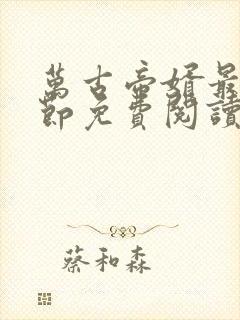 萬古帝婿最
節免費閱讀
蔡和森